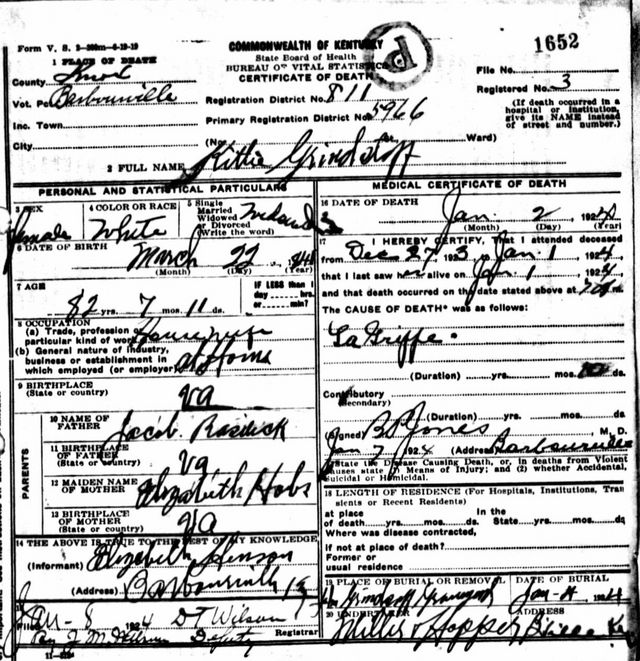 Form V. S. 2-200m-6-19-19
COMMONWEALTH OF KENTUCKY
State Board of Health
BUREAU OF VITAL STATISTICS
CERTIFICATE OF DEATH
1652
File No.
Registered No. 3
(If death occurred in a
hospital or institution,
give its NAME instead
of street and number.)
1 PLACE OF DEATH
County Knox
Vot. Pct. Barbourville
Inc. Town
City
Registration District No. 811
Primary Registration District No. 5966
(No. Ward)
2 FULL NAME Kittie Grindstaff
PERSONAL AND STATISTICAL PARTICULARS
3 SEX
female
4 COLOR OR RACE
White
5 Single
Married
Widowed
or Divorced
(Write the word)
6 DATE OF BIRTH
March 22
(Month) (Day) (Year)
7 AGE
82 yrs. 7 mos. 11 ds.
IF LESS than 1
day hrs.
or min?
8 OCCUPATION
(a) Trade, profession or
particular kind of work Housewife
(b) General nature of industry,
business or establishment in
which employed (or employer) at Home
9 BIRTHPLACE
(State or country) Va
PARENTS
10 NAME OF
FATHER Jacob
11 BIRTHPLACE
OF FATHER
(State or country) Va
12 MAIDEN NAME
OF MOTHER Elizabeth Hobs
13 BIRTHPLACE
OF MOTHER
(State or country) Va
14 THE ABOVE IS TRUE TO THE BEST OF MY KNOWLEDGE
(Informant) Elizabeth Henson
(Address) Barbourville Ky
15
Filed 8 1924 D T Wilson
Registrar
By Deputy
MEDICAL CERTIFICATE OF DEATH
16 DATE OF DEATH
Jan. 2 1924
(Month) (Day) (Year)
17 I HEREBY CERTIFY, That I attended deceased
from Dec 27, 1923 Jan 1 1924
that I last saw alive on Jan 1 1924
and that death occurred on the date stated above at m.
The CAUSE OF DEATH* was as follows:
La Grippe.
(Duration) yrs. mos. 10 ds.
Contributory
(Secondary)
(Duration) yrs. mos. ds
(Signed) Jones M. D.
Jan 7 1924 (Address) Barbourville
*State the Disease Causing Death, or, in deaths from Violent
Causes state (1) Means of Injury; and (2) whether Accidental,
Suicidal or Homicidal.
18 LENGTH OF RESIDENCE (For Hospitals, Institutions, Tran
sients or Recent Residents)
at place In the
of death yrs. mos. ds. State yrs. mos. ds
Where was disease contracted,
if not at place of death?
Former or
usual residence
19 PLACE OF BURIAL OR REMOVAL DATE OF BURIAL
Grindstaff Graveyard Jan-4 1924
20 UNDERTAKER ADDRESS
Miller & Hopper B'ville Ky
11-3184